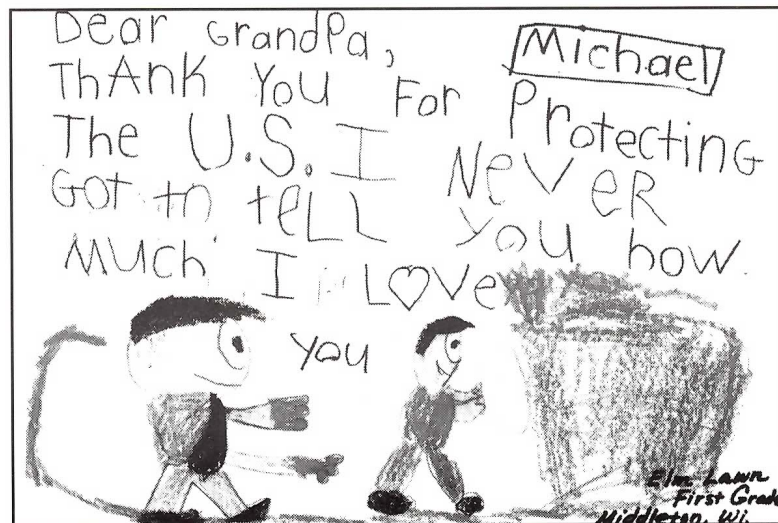 Dear Grandpa,
Michael
ThAnk You For Protecting
The U.S. I NeVER
GoT to teLL you how
Much I LOVe
you
Elm Lawn
First Grade
Middleton, Wi.